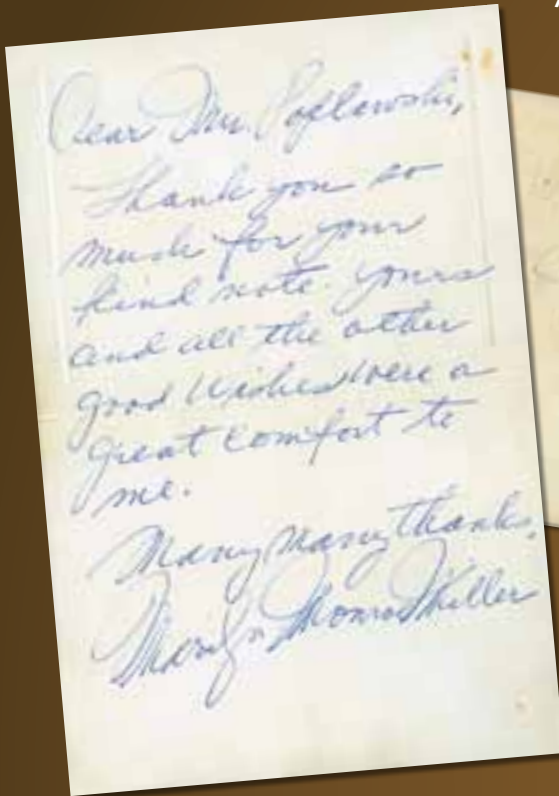 Dear Mr. Poplowski,
Thank you so
much for your
kind note. yours
and all the other
good wishes were a
great comfort to
me.
Many many thanks,
Marilyn Monroe Miller